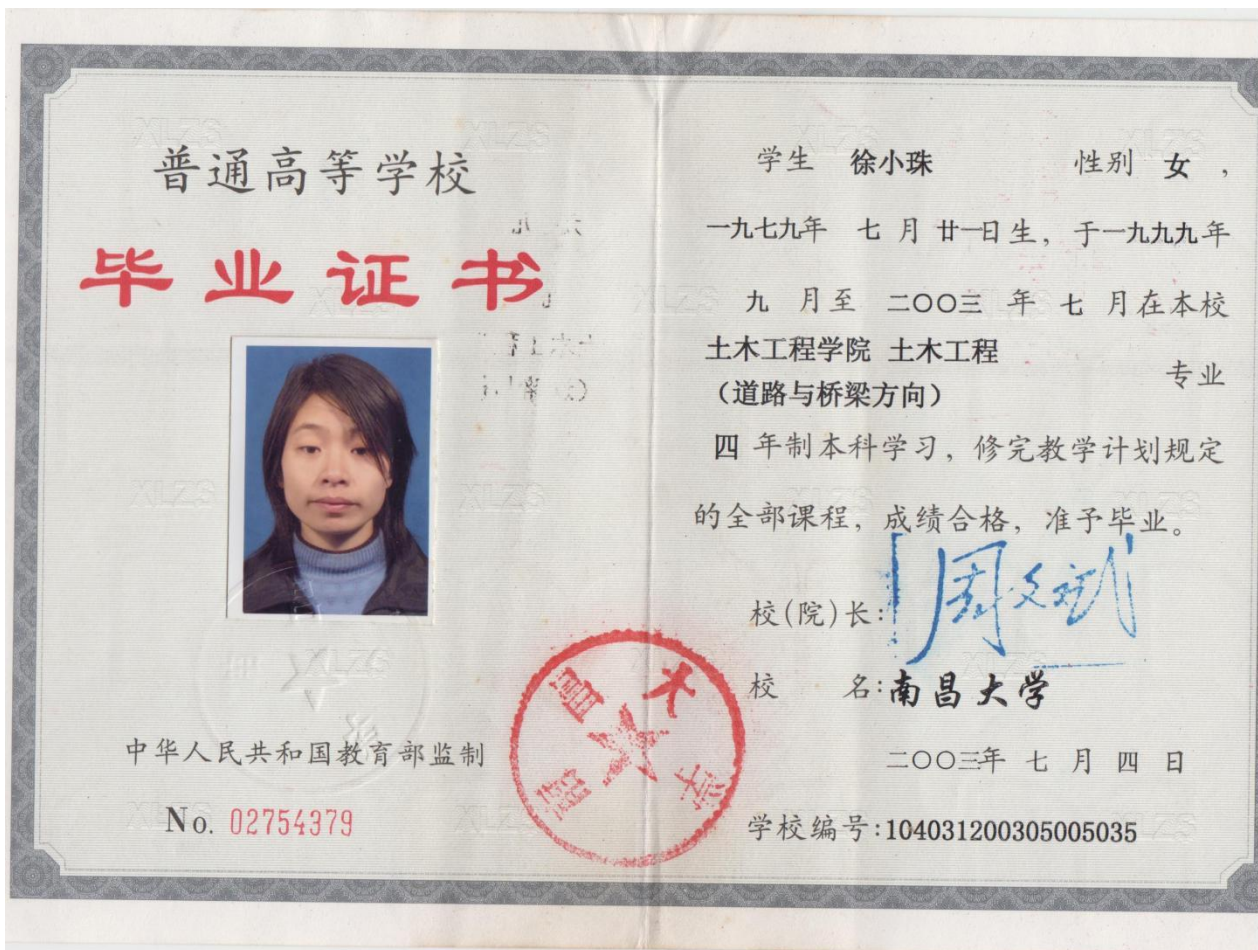 普通高等学校
毕业证书
中华人民共和国教育部监制
No. 02754379
学生 徐小珠 性别 女,
一九七九年 七 月 廿一日生, 于一九九九年
九 月至 二〇〇三 年 七 月在本校
土木工程学院 土木工程
(道路与桥梁方向) 专业
四 年制本科学习, 修完教学计划规定
的全部课程, 成绩合格, 准予毕业。
校(院)长: 周文斌
校 名: 南昌大学
二〇〇三年 七 月 四 日
学校编号:104031200305005035
南昌大学
XLZS